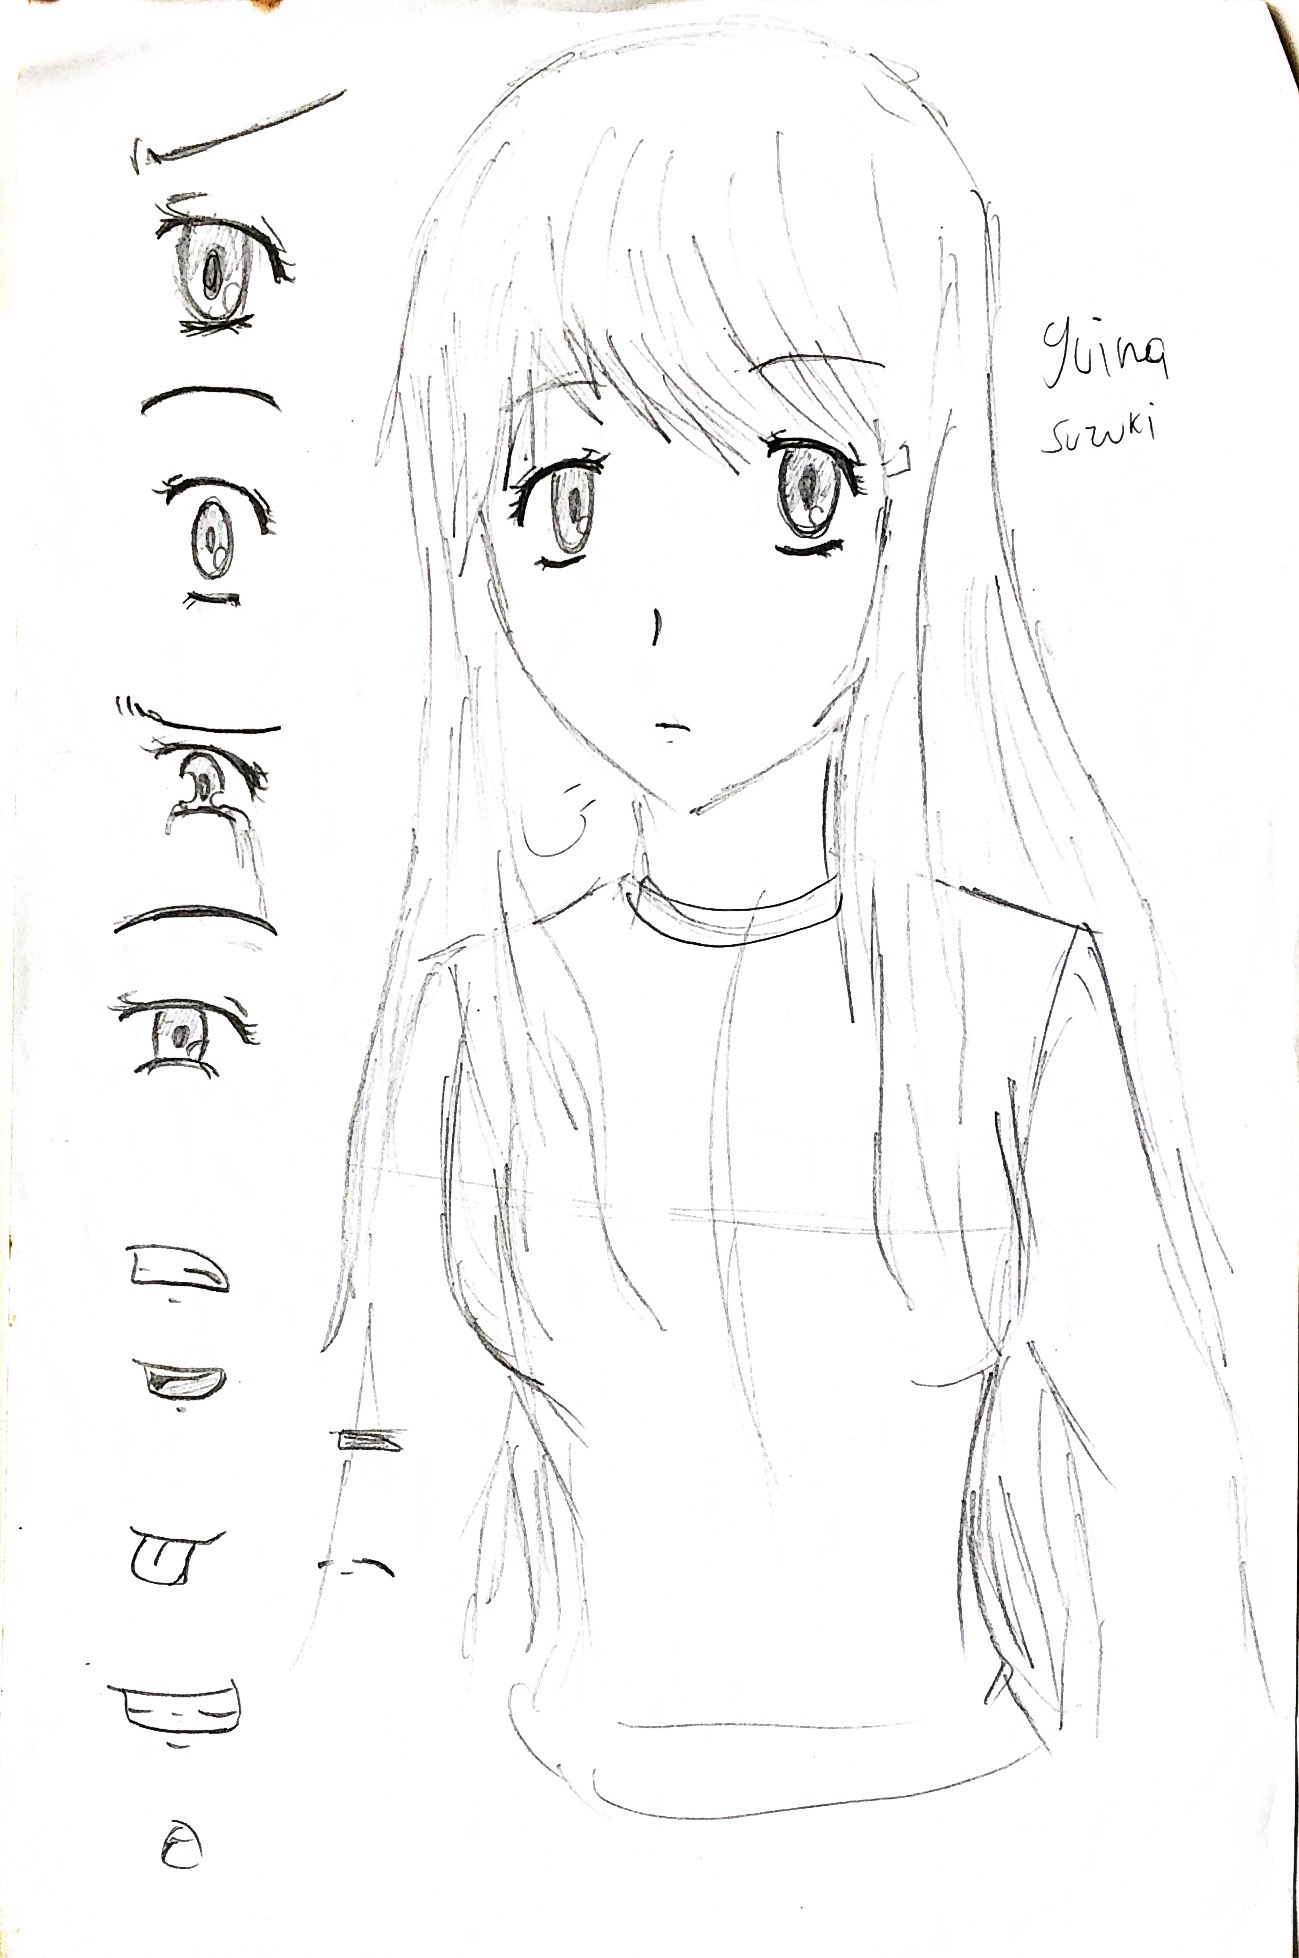 Yuina
Suzuki